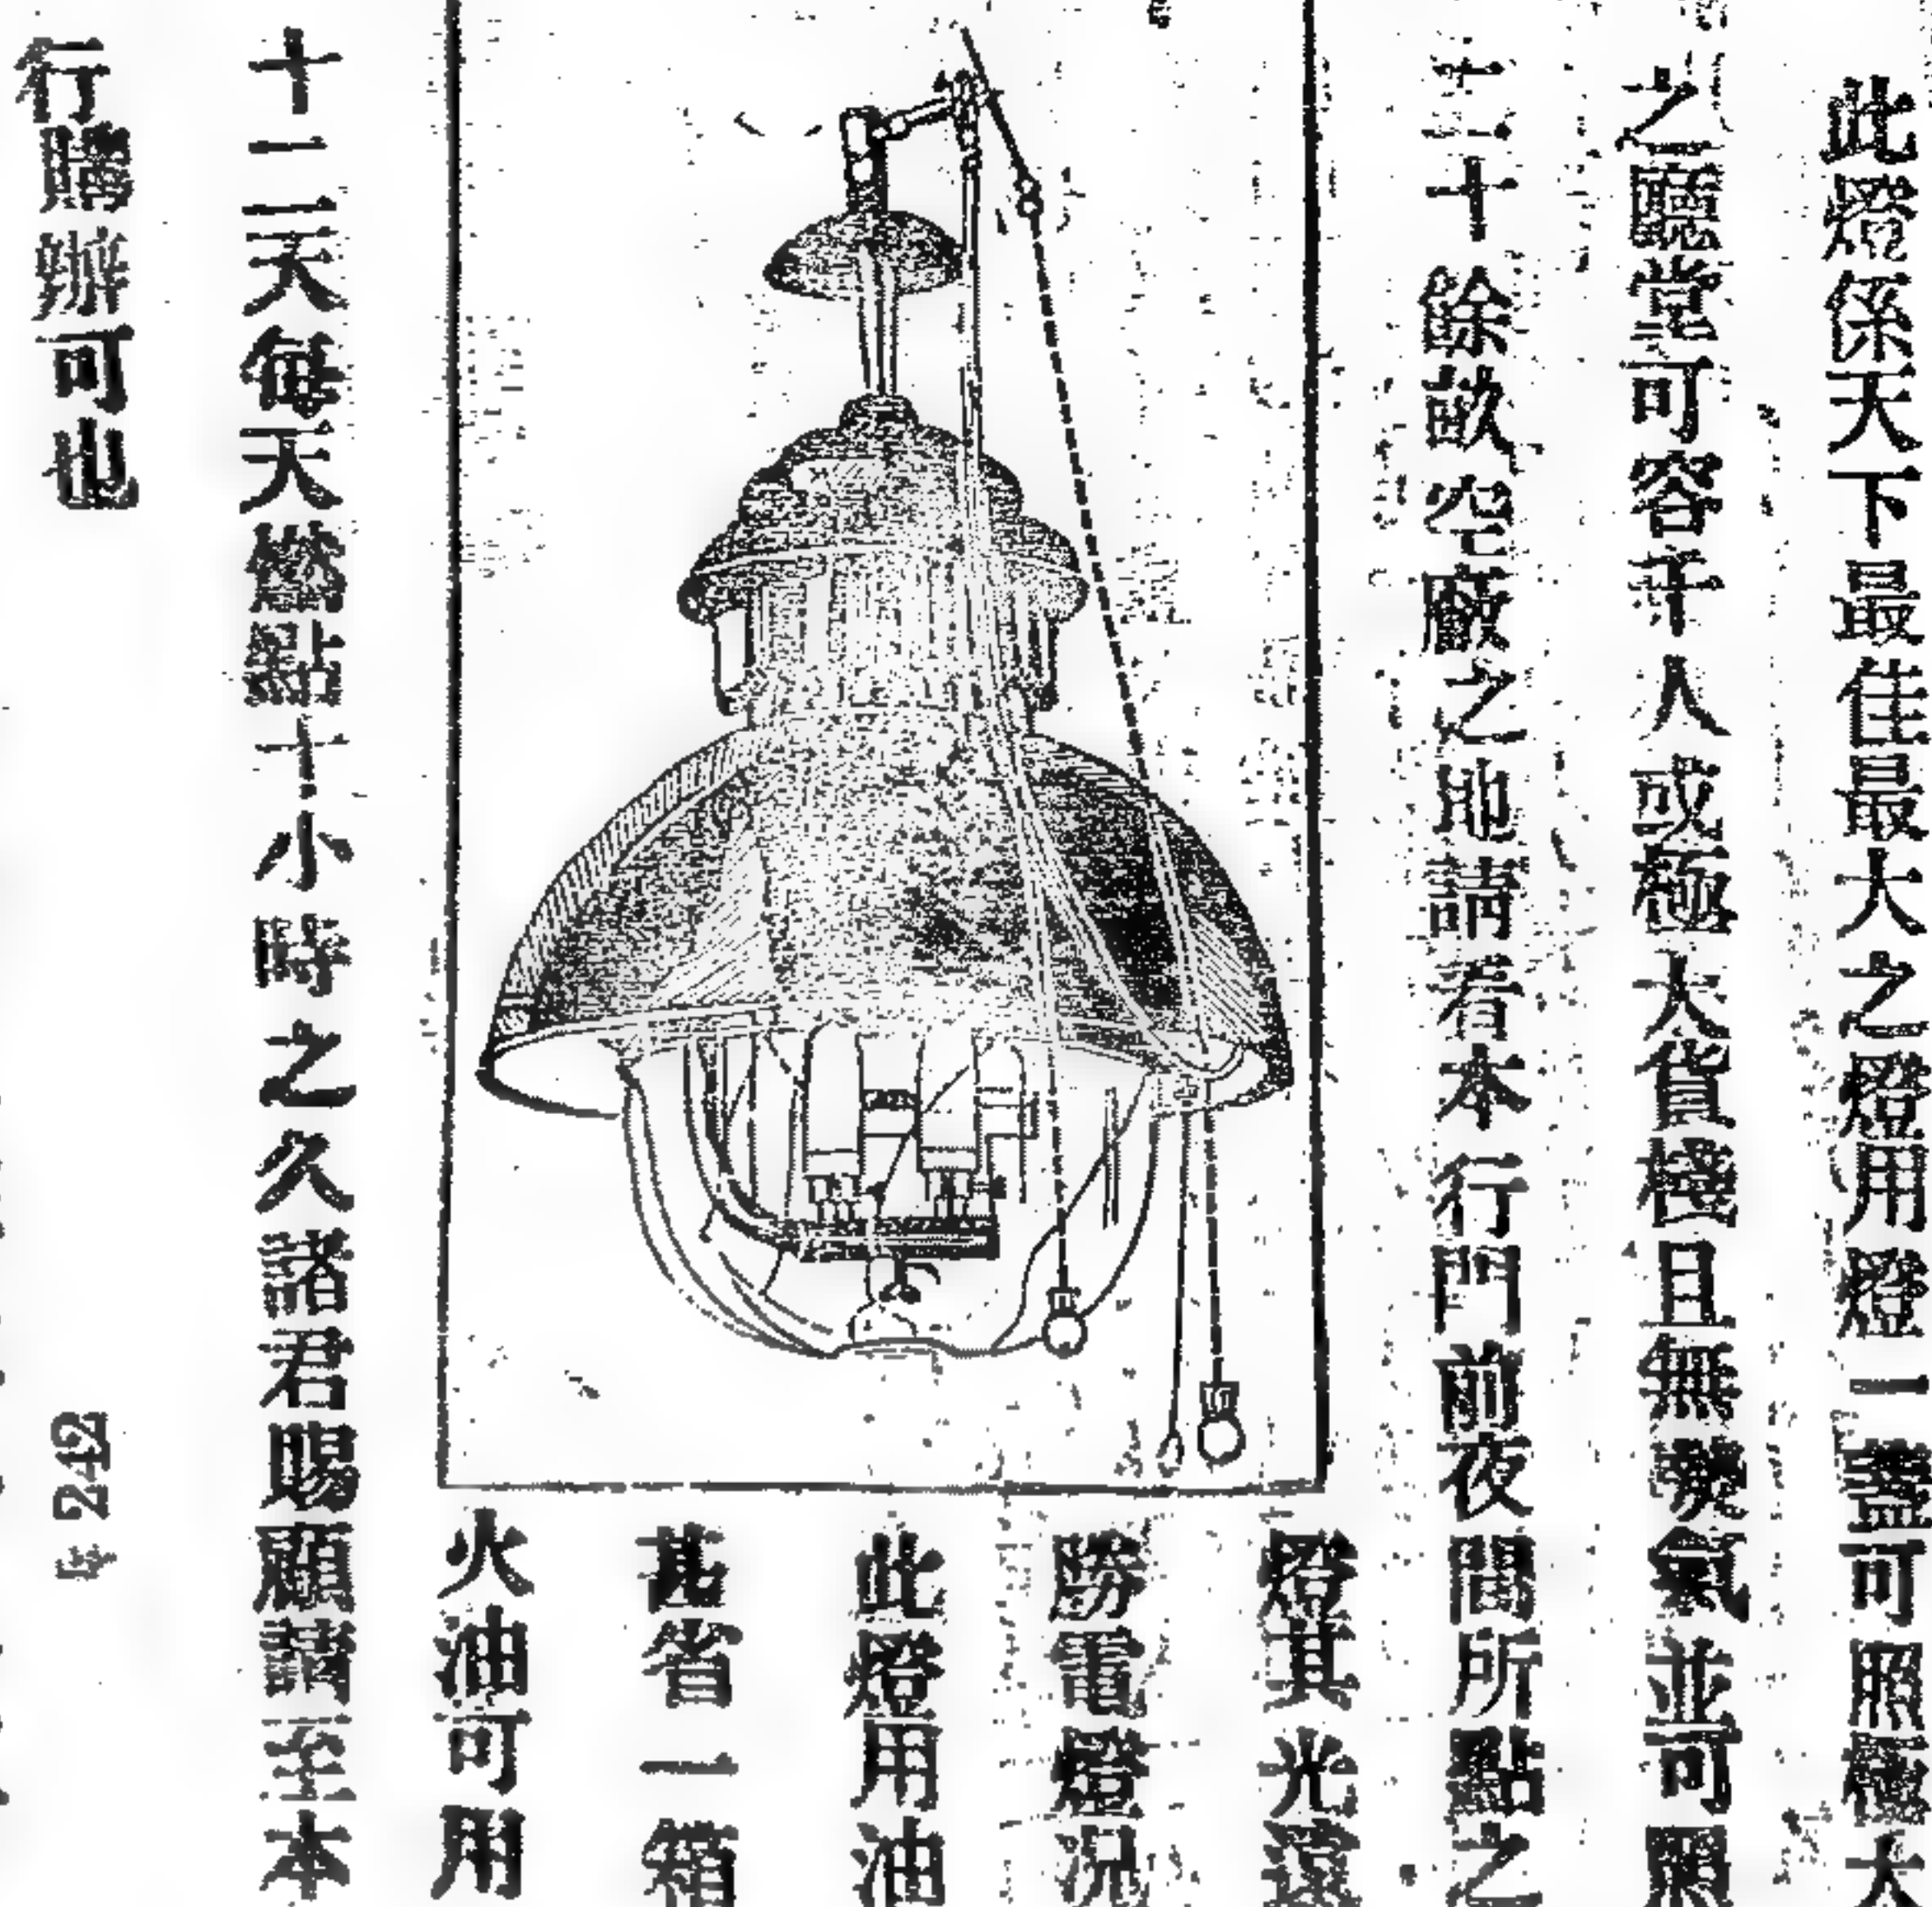 此燈係天下最佳最大之燈用燈一盞可照極大
之廳堂可容千人或極大貨棧且無煤氣並可照
三十餘畝空廠之地請看本行門前夜間所點之
燈其光遠
勝電燈況
此燈用油
甚省一箱
火油可用
十二天每天燃點十小時之久諸君賜顧請至本
行購辦可也
242